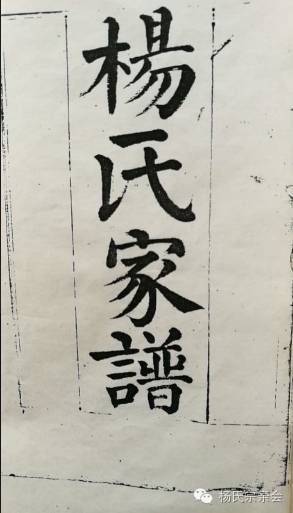 楊氏家譜
杨氏宗亲会